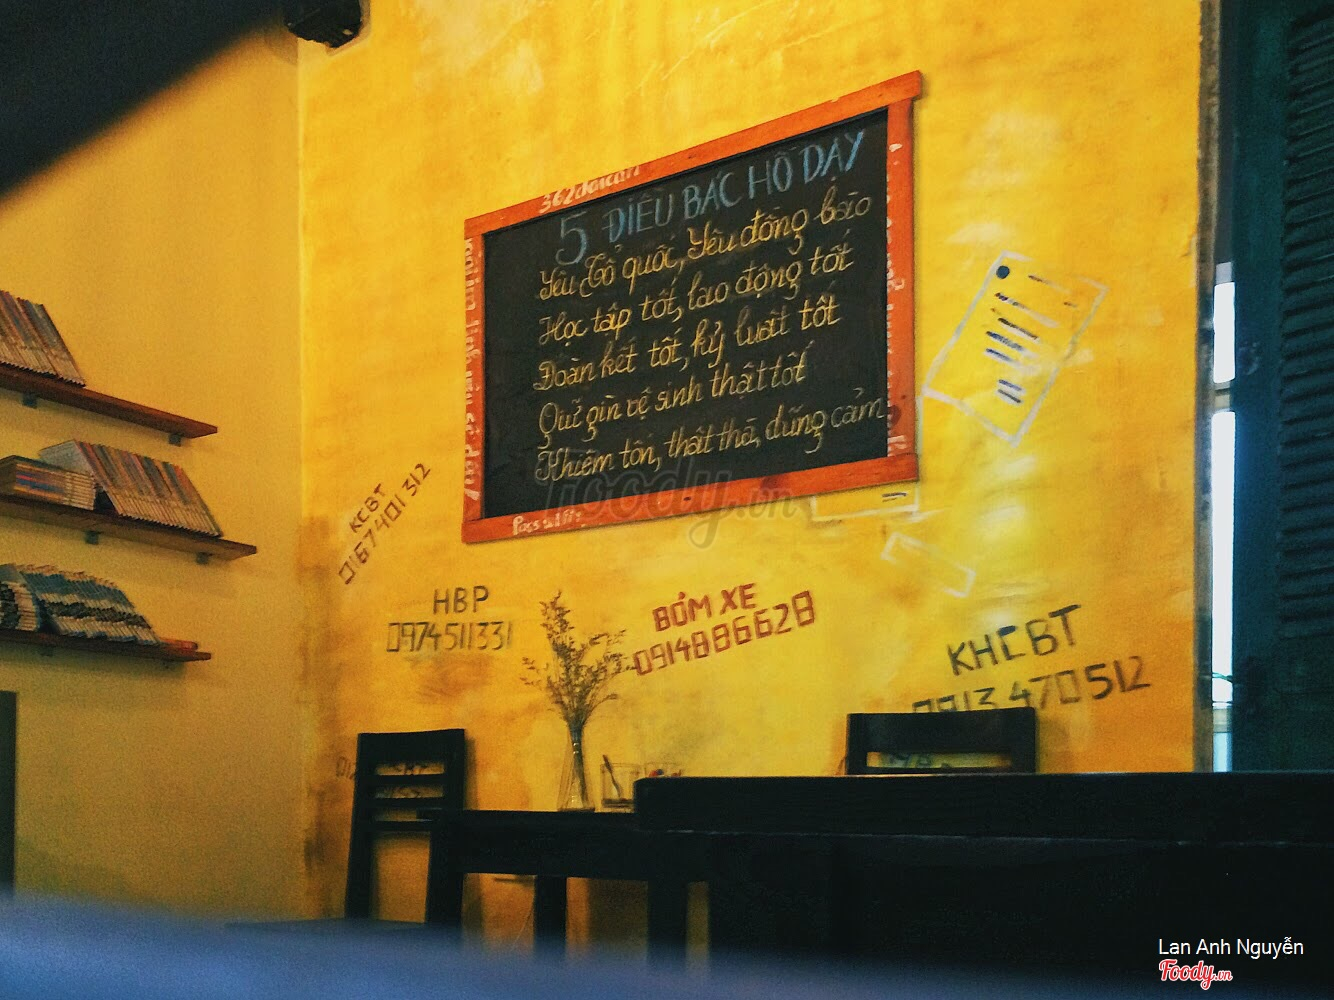 362daican
5 ĐIỀU BÁC HỒ DẠY
Yêu Tổ quốc, Yêu đồng bào
Học tập tốt, lao động tốt
Đoàn kết tốt, kỷ luật tốt
Giữ gìn vệ sinh thật tốt
Khiêm tốn, thật thà, dũng cảm
Pass wifi:
foody.vn
KCBT
0167401312
HBP
0974511331
BƠM XE
0914886628
KHCBT
0913470512
Lan Anh Nguyễn
Foody.vn